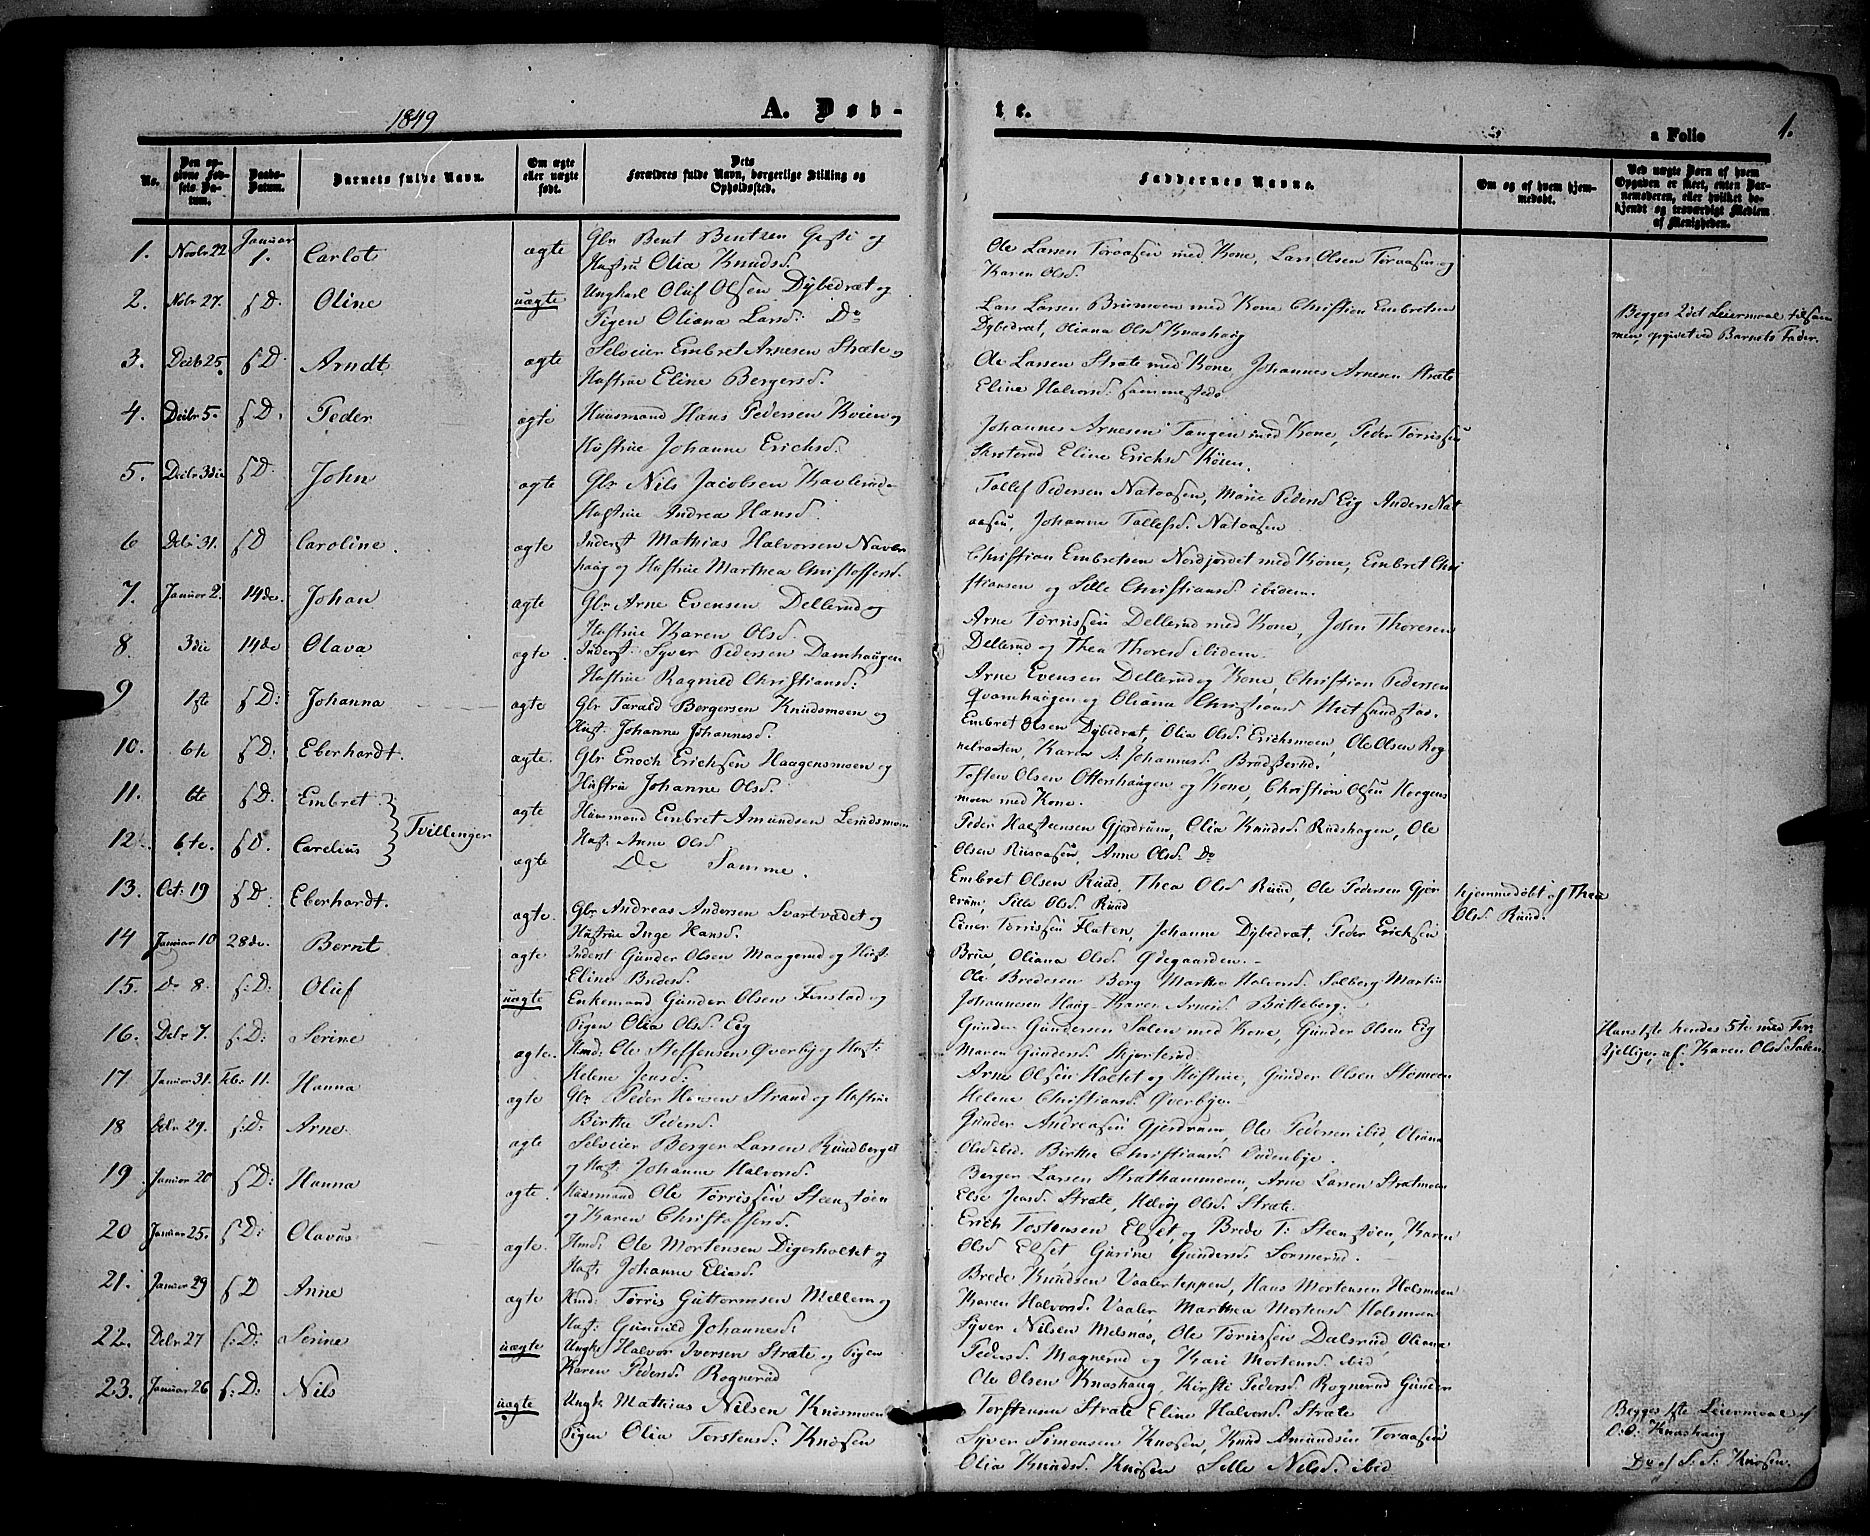 1849
A. Døb-
te.
a Folio 1.
No.
Den op-
givne Fød-
sels Da-
tum.
Daabs-
Datum.
Barnets fulde Navn.
Om ægte
eller uægte
født.
Dets
Forældres fulde Navn, borgerlige Stilling og
Opholdssted.
Faddernes Navne.
Om og af hvem hjem-
medøbt.
Ved uægte Børn af hvem
Opgaven er skeet, enten Bar-
nemoderen, eller hvilket be-
kjendt og troværdigt Medlem
af Menigheden.
1. Novbr 22 Januar 1. Carlot ægte Gbr Bent Bentsen og
Hustru Olia Knudsd.
Ole Larsen Toraasen med Kone, Lars Olsen Toraasen og
Karen Olsd.
2. Nobr 27. s D: Oline uægte Ungkarl Oluf Olsen Dybedræt og
Pigen Oliana Larsd: Do
Lars Larsen Brumoen med Kone Christian Embretsen
Dybedræt, Oliana Olsd Knashaug
Begges 2det Leiermaal tilsam
men, opgivet ved Barnets Fader.
3. Decb 25. s D: Arndt ægte Selveier Embret Arnesen Stræte og
Hustrue Eline Bergersd.
Ole Larsen Stræte med Kone, Johannes Arnesen Stræte
Eline Halvorsd. sammesteds.
4. Decbr 5. s D: Peder ægte Huusmand Hans Pedersen Kvien og
Hustrue Johanne Erichsd.
Johannes Arnesen Tangen med Kone, Peder Tørrissen
Skraterud Eline Erichsd
5. Decbr 3die s D: John ægte Gbr Nils Jacobsen Kavlerud og
Hustrue Andrea Hansd.
Tollef Pedersen Nataasen, Marie Pedersd Eig Anders Nat
aasen, Johanne Tollefsd. Nataasen
6 Debr 31. s D Caroline. ægte Inderst Mathias Halvorsen Naver
haag og Hustrue Marthea Christoffersd.
Christian Embretsen Nordjordet med Kone, Embret Chri
stiansen og Sille Christiansd. ibidem.
7. Januar 2. 14de. Johan ægte Gbr Arne Evensen Dellerud og
Hustrue Karen Olsd.
Arne Tørrissen Dellerud med Kone, John Thoresen
Dellerud og Thea Thoresd ibidem
8 3die 14de Olava ægte. Inderst: Syver Pedersen Damhaugen
Hustrue Ragnild Christiansd.
Arne Evensen Dellerud og Kone, Christian Pedersen
Qvamhaugen og Oliana Christiansd
9 1ste s D: Johanna ægte Gbr Tarald Bergersen Knudsmoen og
Hust: Johanne Johannesd.
Embret Olsen Dybedræt, Olia Olsd. Erichsmoen, Ole Olsen Rog
nebraaten, Karen A. Johannesd. Brudserud.
10. 6te s D: Eberhardt. ægte. Gbr Enoch Erichsen Haagensmoen og
Hustru Johanne Olsd.
Tosten Olsen Ottershaugen og Kone, Christian Olsen Haagens
moen med Kone.
11. 6te s D: Embret ægte Huusmand Embret Amundsen
Hust: Anne Olsd
Peder Halstensen Gjerdrum, Olia Knudsd. Rudshagen, Ole
Olsen Risaasen, Anne Olsd: Do
Tvillinger
12. 6te. s D. Carelius ægte Do Samme.
13. Oct: 19 s D: Eberhardt. ægte. Gbr Andreas Andersen Svartvædet og
Hustrue Inge Hansd.
Embret Olsen Rüud, Thea Olsd Rüud, Ole Pedersen Gjer
drum, Sille Olsd. Rüud
hjemmedøbt af Thea
Olsd. Rüud
14 Januar 10 28de. Bernt ægte Inderst Gunder Olsen Maagerud og Hust:
Eline
Einer Tørrissen Flaten, Johanne Dybedræt, Peder Erichsen
Oliana Olsd. Ødegaarden.
15. Do 8. s: D: Oluf uægte Enkemand Gunder Olsen Finstad og
Pigen Olia Olsd. Eig
Ole Bredesen Berg Marthe Halvorsd. Solberg Martin
Johannesen Haag Karen Bøtteberg:
16. Debr 7. s: D: Serine ægte. Hmd: Ole Steffensen Øverby og Hust:
Helene Jensd:
Gunder Gundersen Salen med Kone, Gunder Olsen Eig
Maren Gundersd.
Hans 1ste hendes 5te med For
skjellige, af Karen Olsd Salen
17 Januar 31. Feb: 11. Hanna ægte Gbr Peder Hansen Strand og Hustrue
Birthe Pedersd.
Arne Olsen Haltet og Hustrue, Gunder Olsen
Helene Christiansd. Øverbye.
18 Debr 29. s: D: Arne. ægte Selveier Berger Larsen Rundberget
og Hust: Johanna Halvorsd.
Gunder Andreasen Gjerdrum, Ole Pedersen ibid, Oliana
Olsd ibid. Birthe Christiansd.
19 Januar 20 s D: Hanna ægte. Huusmand Ole Tørrissen Steenstøen
og Karen Christoffersd.
Berger Larsen Strathammeren, Arne Larsen Strætmoen
Else Jensd. Stræte, Helvig Olsd. Stræte.
20 Januar 25. s D: Olavus ægte. Hmd: Ole Mortensen Digerholtet og
Hust: Johanne Eliasd.
Erich Tostensen Elset, og Brede T: Steenstøen, Karen
Olsd Elset, Gurine Gundersd.
21. Januar 29 s D Anne ægte Hmd: Tørris Guttormsen Mellem og
Hust: Gunnild Johannesd:
Brede Knudsen Vaalerteppen, Hans Mortensen Holsmoen
Karen Halvorsd. Vaaler, Marthea Mortensd. Holsmoen
22. Debr 27 s: D: Serine uægte Ungk: Halvor Iversen Stræte og Pigen
Karen Pedersd. Rognerud
Syver Nilsen Melsnæs, Ole Tørrissen Dælsrud, Oliana
Pedersd. Magnerud og Kari Mortensd. ibid
Ole Olsen Knashaug, Kirsti Pedersd. Rognerud Gunder
Torstensen Stræte Eline Halvorsd. Stræte
Begges 1ste Leiermaal af
O: O: Knashaug
23. Januar 26 s: D: Nils uægte Ungk: Mathias Nilsen Knosmoen
Pigen Olia Torstensd: Knosen
Syver Simonsen Knosen, Knud Amundsen Toraasen
Olia Knudsd. Knosen Sille Nilsd. ibid
Do af S: S: Knosen.